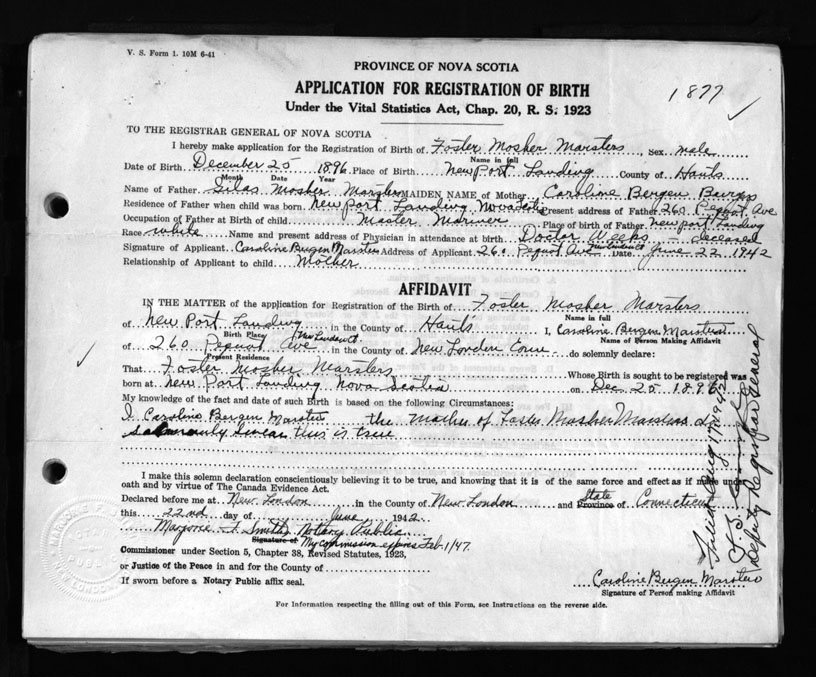 V. S. Form 1. 10M 6-41
PROVINCE OF NOVA SCOTIA
APPLICATION FOR REGISTRATION OF BIRTH
1877
Under the Vital Statistics Act, Chap. 20, R. S. 1923
TO THE REGISTRAR GENERAL OF NOVA SCOTIA
I hereby make application for the Registration of Birth of Foster Mosher Marsters, Sex male
Name in full
Date of Birth December 25 1896 Place of Birth New Port Landing County of Hants
Month Date Year
Name of Father Silas Mosher Marsters MAIDEN NAME of Mother Caroline Bergen
Residence of Father when child was born New Port Landing Nova Scotia Present address of Father 260 Pequot Ave
Occupation of Father at Birth of child Master Mariner Place of birth of Father Newport Landing
Race white Name and present address of Physician in attendance at birth Doctor Weeks - deceased
Signature of Applicant Caroline Bergen Marsters Address of Applicant 260 Pequot Ave New London Ct Date June 22 1942
Relationship of Applicant to child Mother
AFFIDAVIT
IN THE MATTER of the application for Registration of the Birth of Foster Mosher Marsters
Name in full
of New Port Landing in the County of Hants I, Caroline Bergen Marsters
Birth Place Name of Person Making Affidavit
of 260 Pequot Ave New London Ct in the County of New London Conn do solemnly declare:
Present Residence
That Foster Mosher Marsters Whose Birth is sought to be registered was
born at New Port Landing Nova Scotia on Dec 25 1896
My knowledge of the fact and date of such Birth is based on the following Circumstances:
I Caroline Bergen Marsters the Mother of Foster Mosher Marsters do
solemnly swear this is true
I make this solemn declaration conscientiously believing it to be true, and knowing that it is of the same force and effect as if made under
oath and by virtue of The Canada Evidence Act.
State
Declared before me at New London in the County of New London and Province of Connecticut
this 22nd day of June 1942
Marjorie F. Smith Notary Public
Signature of My commission expires Feb 1/47.
Commissioner under Section 5, Chapter 38, Revised Statutes, 1923,
or Justice of the Peace in and for the County of
If sworn before a Notary Public affix seal.
Caroline Bergen Marsters
Signature of Person making Affidavit
For Information respecting the filling out of this Form, see Instructions on the reverse side.
Filed Aug 17 1942
Deputy Registrar General